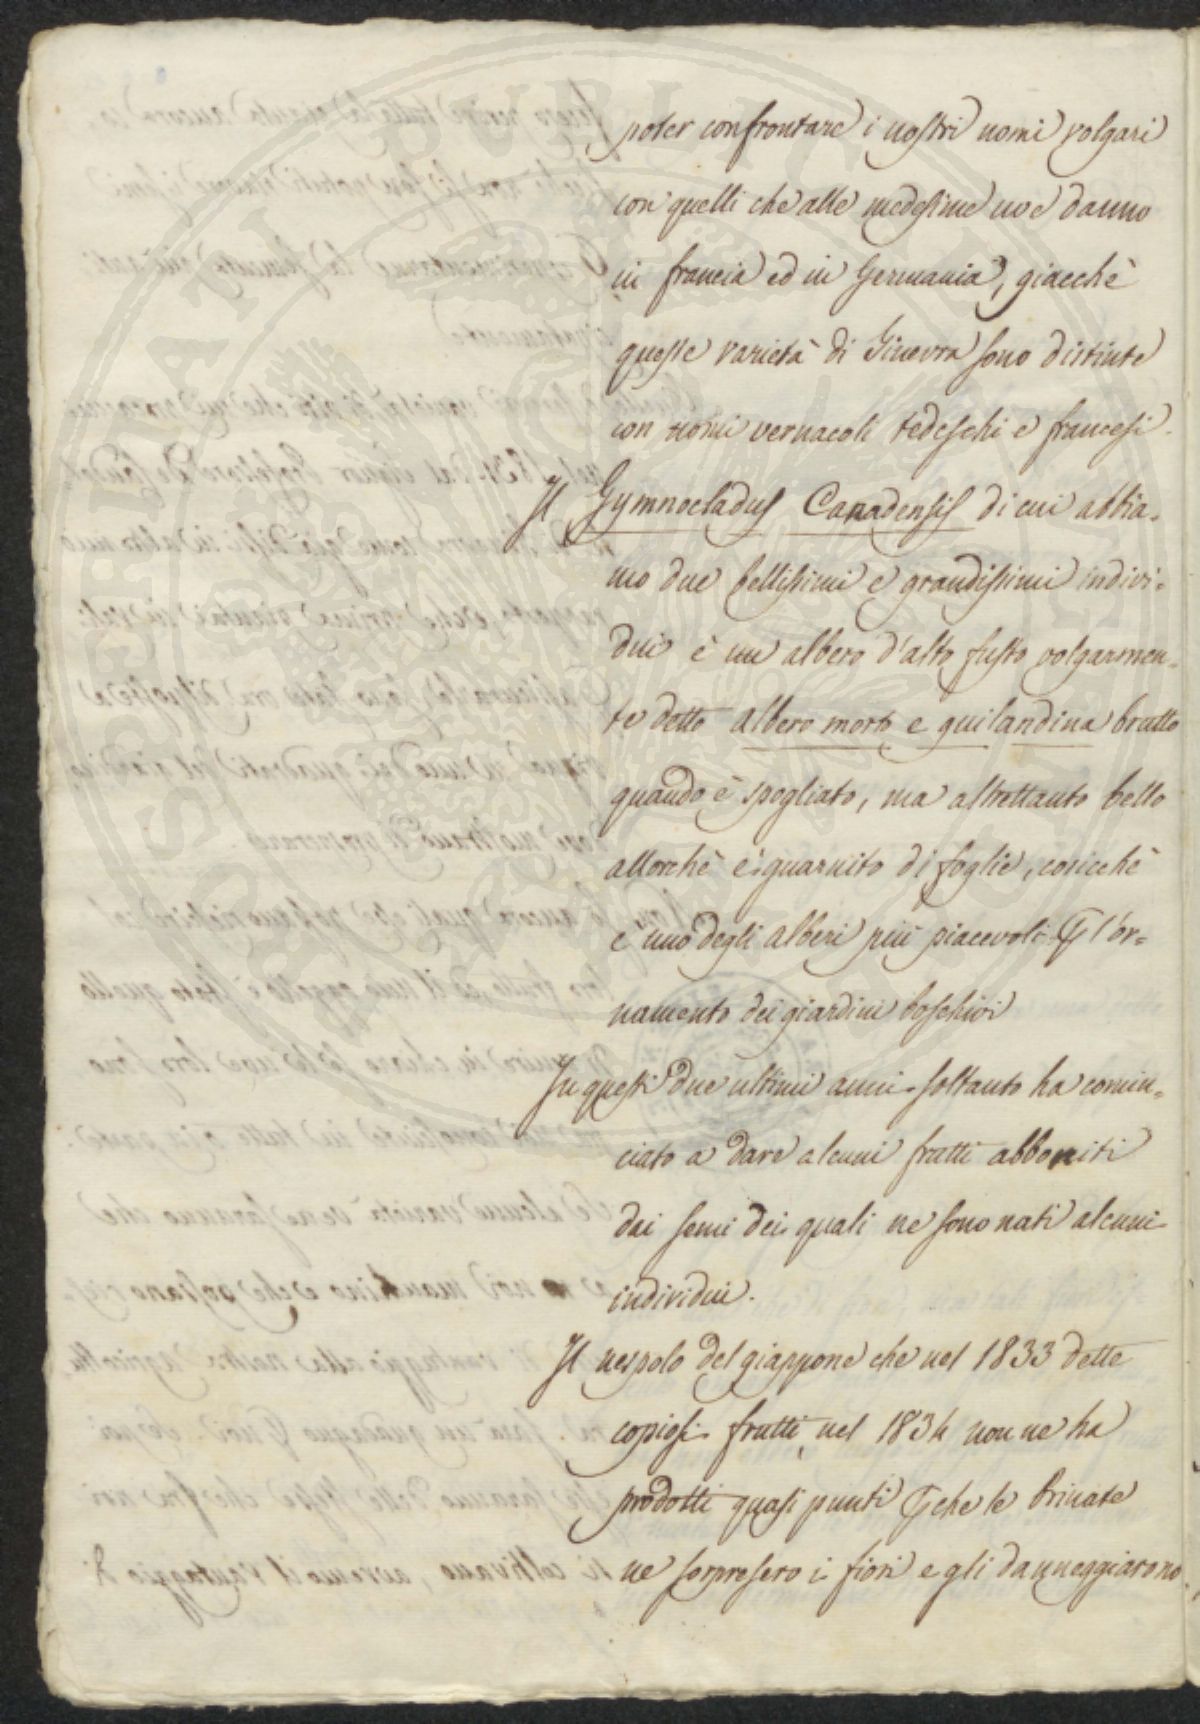 poter confrontare i nostri nomi volgari
con quelli che alle medesime ne danno
in francia ed in Germania, giacchè
queste varietà di Ginevra sono distinte
con nomi vernacoli tedeschi e francesi.
Il Gymnocladus Canadensis di cui abbia=
mo due bellissimi e grandissimi indivi=
dui è un albero d'alto fusto volgarmen=
te detto albero morto e guilandina brutto
quando è spogliato, ma altrettanto bello
allorchè è guarnito di foglie, cosicchè
è uno degli alberi più piacevoli l'or=
namento dei giardini boschivi
In questi due ultimi anni soltanto ha comin=
ciato a dare alcuni frutti abboniti
dai semi dei quali ne sono nati alcuni
individui.
Il nespolo del giappone che nel 1833 dette
copiosi frutti, nel 1834 non ne ha
prodotti quasi punti che le brinate
ne sorpresero i fiori e gli danneggiarono